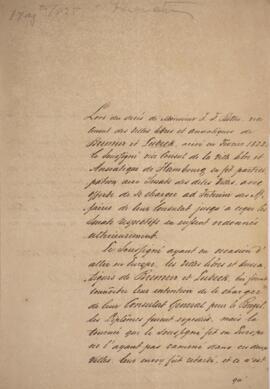 Lors du décès de Monsieur J. J.
tement des villes libres et anséatiques de
Bremen et Lubeck, arrivé en Fevrier 1822,
le Soussigné vice Consul de la ville libre et
Anséatique de Hambourg en fit partici-
pation aux Senats des dites Villes, avec
offerte de se charger ad Interim des af-
faires de leur Consulat jusqu'à ce que les
Senats respectifs en eussent ordonné
ultérieurement.
Le Soussigné ayant eu occasion d'
aller en Europe, les villes libres et ansé-
atiques de Bremen et Lubeck, lui firent
connaître leur intention de le charger
de leur Consulat General pour le Brezil.
les Diplomes furent expediés, mais la
tournée que le Soussigné fit en Europe
ne l'ayant pas ramené dans ces deux
villes, leur envoy fut retardé, et ce n'est
qu'